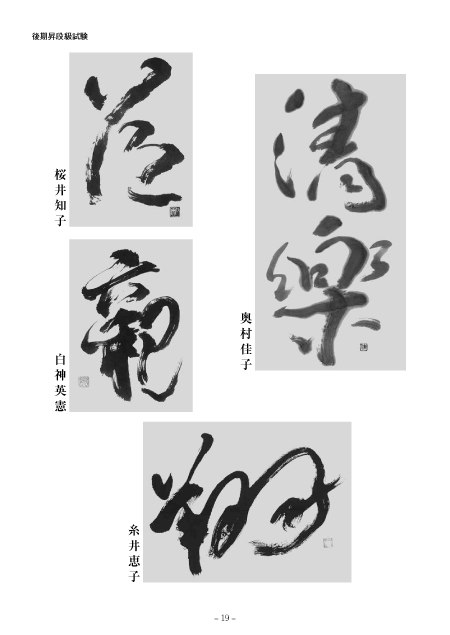 後期昇段級試験
桜井知子
清樂
奥村佳子
白神英憲
糸井恵子
– 19 –